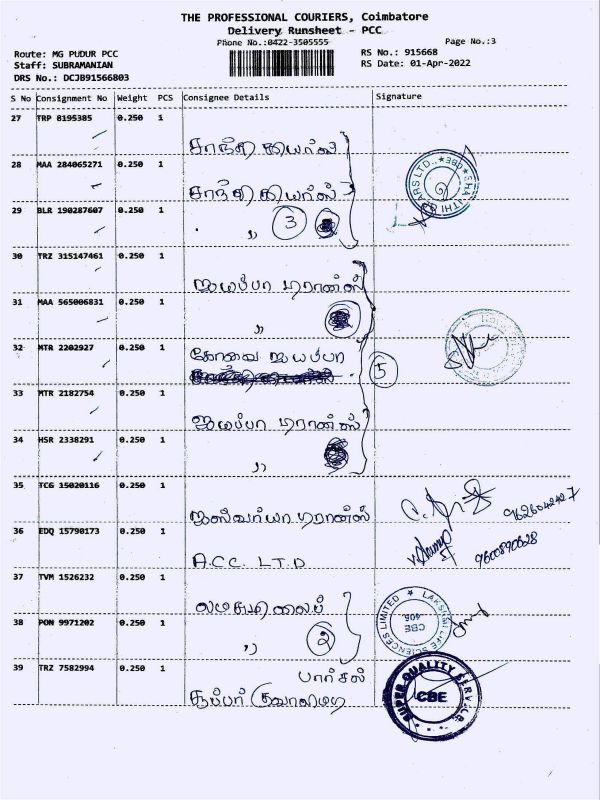 THE PROFESSIONAL COURIERS, Coimbatore
Delivery Runsheet - PCC
Phone No.:0422-3505555 Page No.:3
Route: MG PUDUR PCC RS No.: 915668
Staff: SUBRAMANIAN RS Date: 01-Apr-2022
DRS No.: DCJB91566803
S No Consignment No Weight PCS Consignee Details Signature
27 TRP 8195385 0.250 1
சாந்தி கியர்ஸ்
28 MAA 284065271 0.250 1
சாந்தி கியர்ஸ்
SHAANTHI GEARS LTD. CBE
29 BLR 190287607 0.250 1
" 3
30 TRZ 315147461 0.250 1
ஐயப்பா டிரான்ஸ்
31 MAA 565006831 0.250 1
"
32 MTR 2202927 0.250 1
கோவை ஐயப்பா
5
33 MTR 2182754 0.250 1
ஐயப்பா டிரான்ஸ்
34 HSR 2338291 0.250 1
"
35 TCG 15020116 0.250 1
ஐஸ்வர்யா டிரான்ஸ்
9626042427
36 EDQ 15790173 0.250 1
A.C.C. LTD
9600890628
37 TVM 1526232 0.250 1
38 PON 9971202 0.250 1
" 2
LAKSHMI LIFE SCIENCES LIMITED CBE
39 TRZ 7582994 0.250 1
பார்சல்
சூப்பர் குவாலிடி
SUPER QUALITY SERVICE CBE